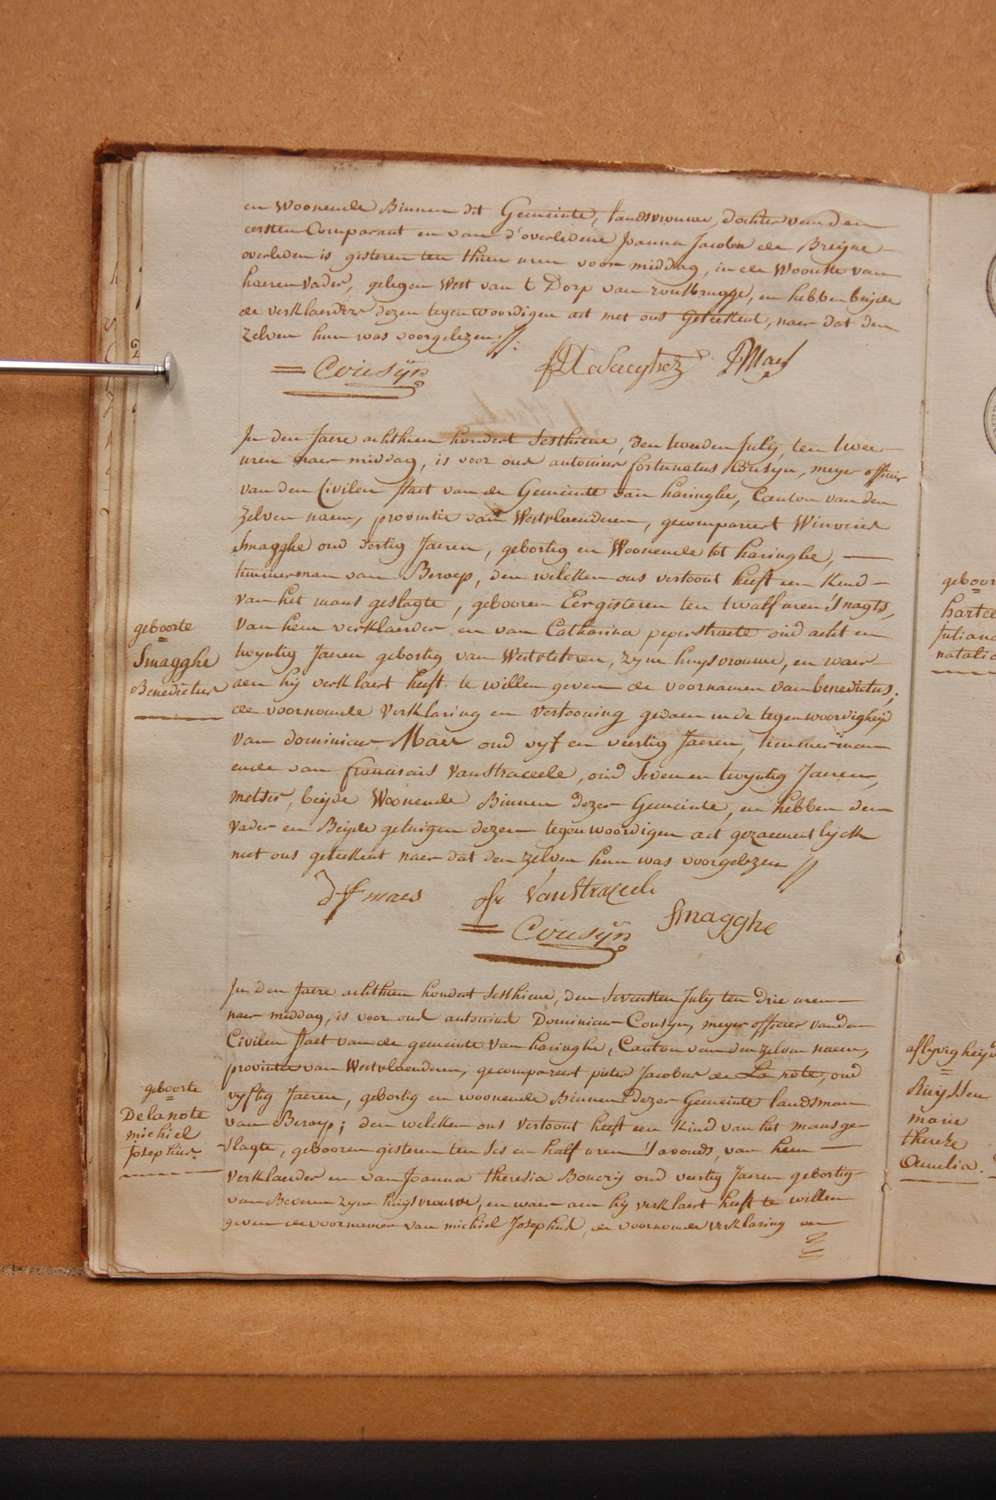 en Woonende Binnen dit Gemeinte, landsvrouwe, dochter van den
eersten Comparant en van d'overledene Joanna Jacoba de Breyne
overleden is gisteren ten thien uren voor middag, in de Woonste van
haeren Vader, gelegen West van t Dorp van rousbrugge, en hebben beyde
de verklaerders dezen tegenwoordigen act met ons geteekent, naer dat den
zelven hun was voorgelezen //.
Cousÿn
In den Jaere achthien hondert sesthiene, den tweeden July, ten twee
uren naer middag, is voor ons antonius fortunatus Cousyn, meyer officier
van den Civilen staet van de Gemeinte van haringhe, Canton van den
zelven naem, provintie van Westvlaenderen, gecompareert Winocus
Smagghe oud dertig Jaeren, gebortig en Woonende tot haringhe,
timmerman van Beroep, den welcken ons vertoont heeft een Kind
van het mans geslagte, gebooren Eergisteren ten twalf uren 's nagts,
van hem verklaerder en van Catharina peperstraete oud acht en
twyntig Jaeren gebortig van Westvleteren, zyne huysvrouwe, en waer
aen hij verklaert heeft te willen geven de voornamen van benedictus;
de voornoemde verklaring en vertooning gedaen in de tegenwoordigheyd
van dominicus Maes oud vyf en veertig Jaeren, timmerman
ende van franciscus Vanstraceele, oud seven en twyntig Jaeren,
metser, beyde Woonende Binnen dezer Gemeinte, en hebben den
vader en Beyde getuigen dezen tegenwoordigen act gezaementlyck
met ons geteekent naer dat den zelven hun was voorgelezen //
geboorte
Smagghe
Benedictus
maes
VanStraceele
Smagghe
Cousÿn
In den Jaere achthien hondert sesthiene, den seventien July ten drie uren
naer middag, is voor ons antonius Dominicus Cousyn, meyer officier van den
Civilen staet van de gemeinte van haringhe, Canton van den zelven naem,
provintie van Westvlaenderen, gecompareert pieter Jacobus de La note, oud
vyftig Jaeren, gebortig en woonende Binnen dezer Gemeinte landsman
van Beroep; den welcken ons vertoont heeft een Kind van het mans ge-
slagte, gebooren gisteren ten ses en half uren 's avonds, van hem
verklaerder en van Joanna theresia Boucry oud veertig Jaeren gebortig
van Beveren zyne huysvrouwe, en waer aen hij verklaert heeft te willen
geven de voornamen van michiel Josephus, de voornoemde verklaring en
geboorte
De la note
michiel
Josephus
geboor
harte
Juliana
natalie
aflyvigheyd
Ruyssen
marie
thereze
Amelia.